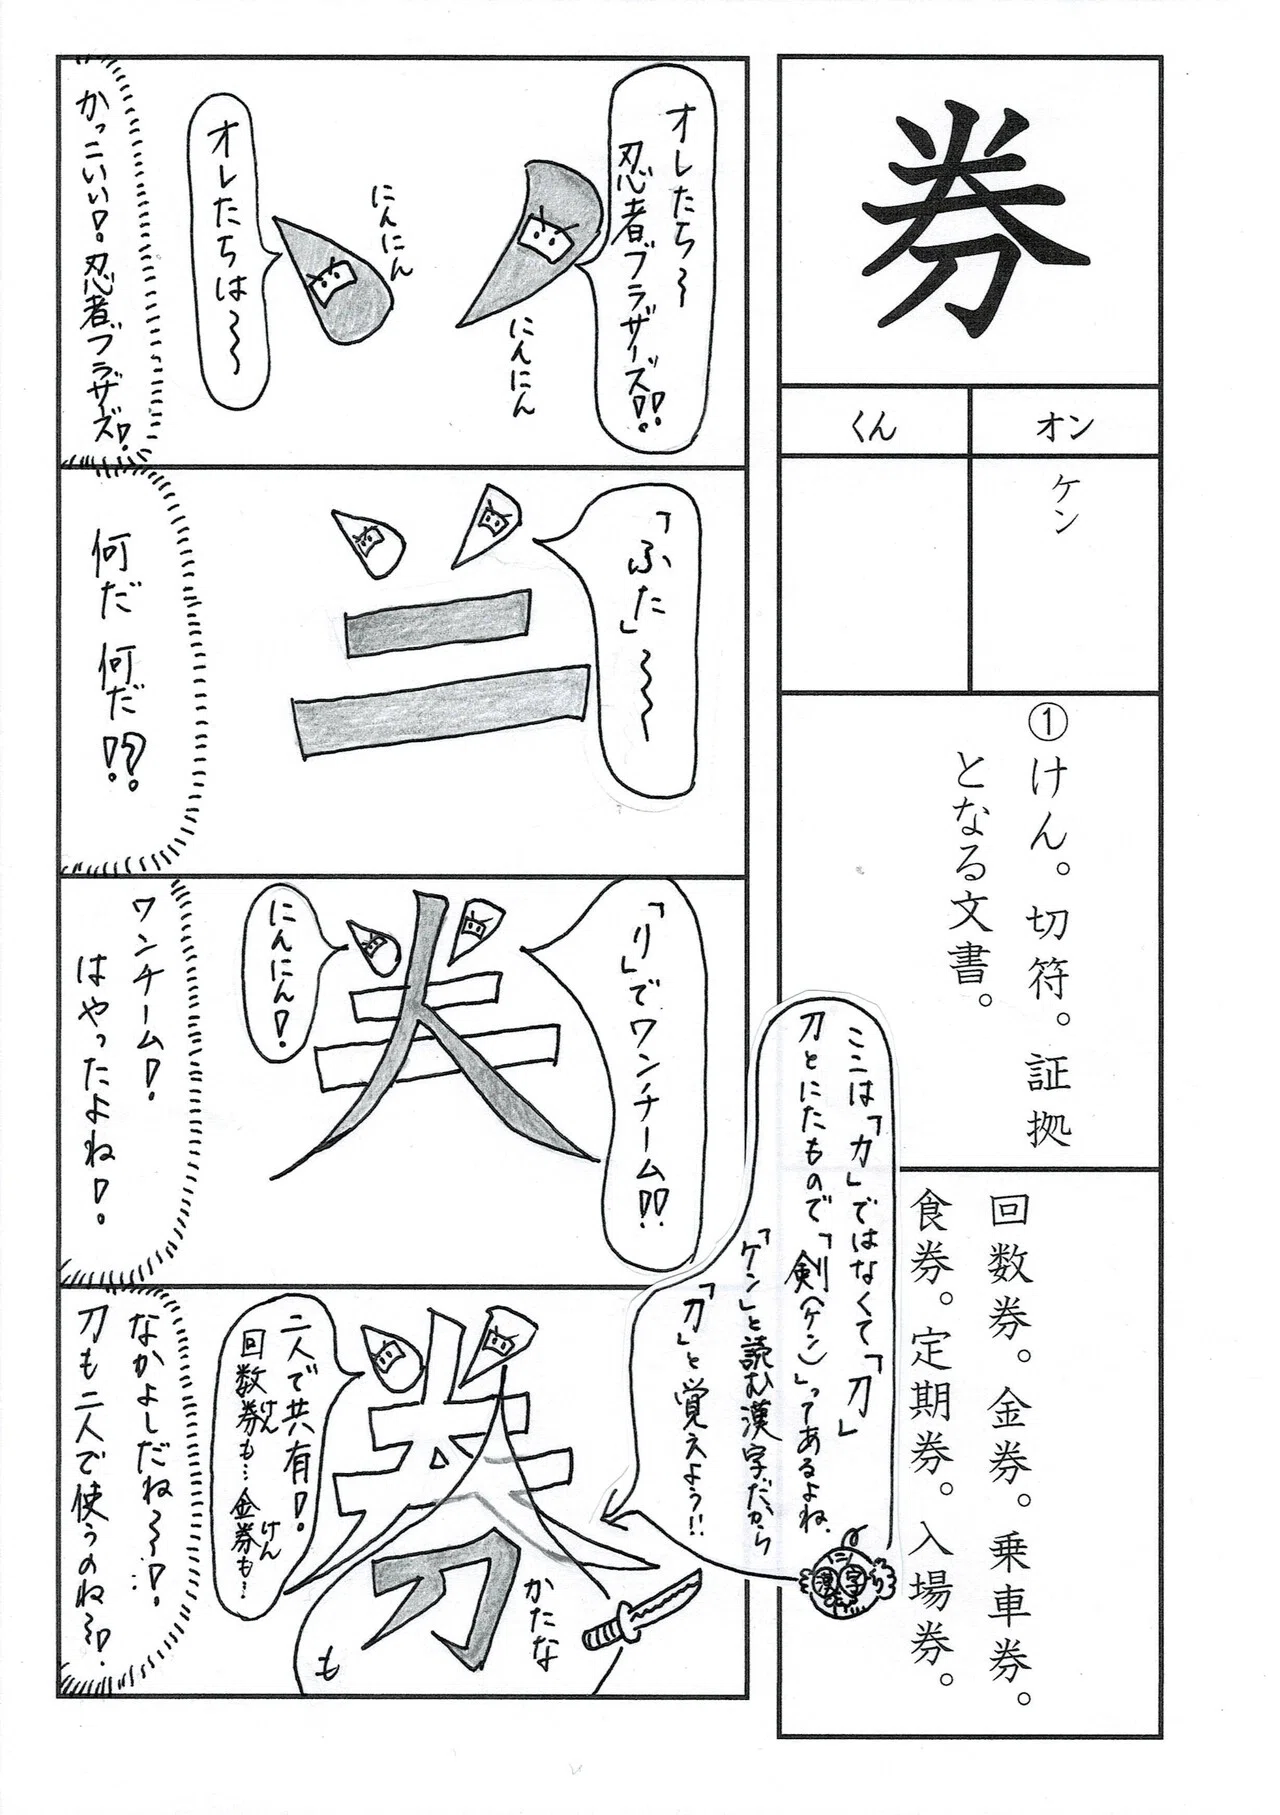 券
オン
くん
ケン
①けん。切符。証拠
となる文書。
回数券。金券。乗車券。
食券。定期券。入場券。
オレたち〜
忍者ブラザーズ!!
にんにん
にんにん
オレたちは〜〜
かっこいい!忍者ブラザーズ!
「ふた」〜〜
何だ何だ!?
「り」でワンチーム!!
にんにん!
ワンチーム!
はやったよね!
ここは「力」ではなくて「刀」
刀とにたもので「剣(ケン)」ってあるよね、
「ケン」と読む漢字だから
「刀」と覚えよう!!
漢字
二人で共有!
回数券も…金券も…
けん
けん
かたな
も
なかよしだね〜〜!
刀も二人で使うのね〜!